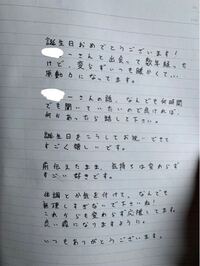 誕生日おめでとうございます!
ーさんと出会って数年経った
けど、変らずいつも暖かくてい
原動力になってます。
ーさんの話、なんでも何時間
でも聞いていたいので良ければ、
何かあったら話して下さい。
誕生日をこうしてお祝いできて
すごく嬉しいです。
前伝えたまま、気持ちは変わらず
すごい好きです。
体調とか気を付けて、なんでも
無理しすぎないで下さいね!
これからも変わらず応援してます。
良い歳になりますように。
いつもありがとうございます。